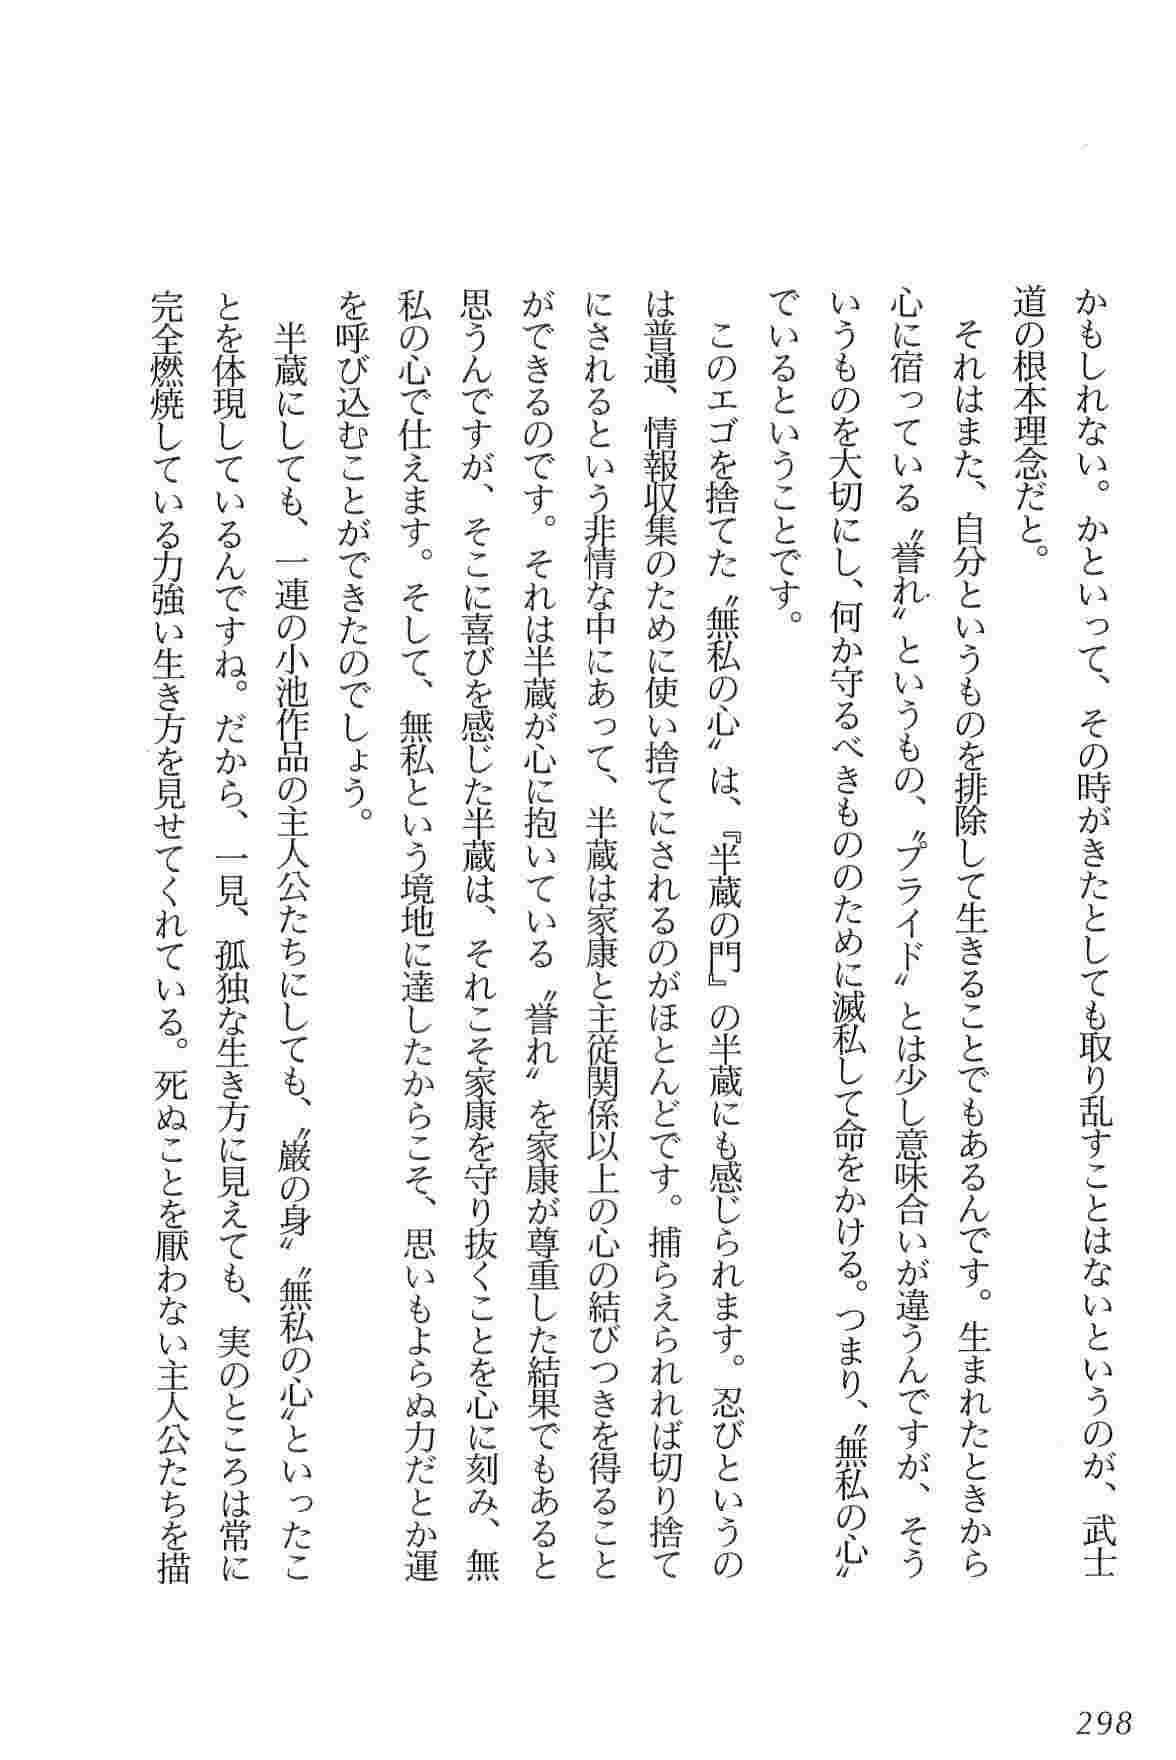 かもしれない。かといって、その時がきたとしても取り乱すことはないというのが、武士
道の根本理念だと。
　それはまた、自分というものを排除して生きることでもあるんです。生まれたときから
心に宿っている〝誉れ〟というもの、〝プライド〟とは少し意味合いが違うんですが、そう
いうものを大切にし、何か守るべきもののために滅私して命をかける。つまり、〝無私の心〟
でいるということです。
　このエゴを捨てた〝無私の心〟は、『半蔵の門』の半蔵にも感じられます。忍びというの
は普通、情報収集のために使い捨てにされるのがほとんどです。捕らえられれば切り捨て
にされるという非情な中にあって、半蔵は家康と主従関係以上の心の結びつきを得ること
ができるのです。それは半蔵が心に抱いている〝誉れ〟を家康が尊重した結果でもあると
思うんですが、そこに喜びを感じた半蔵は、それこそ家康を守り抜くことを心に刻み、無
私の心で仕えます。そして、無私という境地に達したからこそ、思いもよらぬ力だとか運
を呼び込むことができたのでしょう。
　半蔵にしても、一連の小池作品の主人公たちにしても、〝巌の身〟〝無私の心〟といったこ
とを体現しているんですね。だから、一見、孤独な生き方に見えても、実のところは常に
完全燃焼している力強い生き方を見せてくれている。死ぬことを厭わない主人公たちを描
298